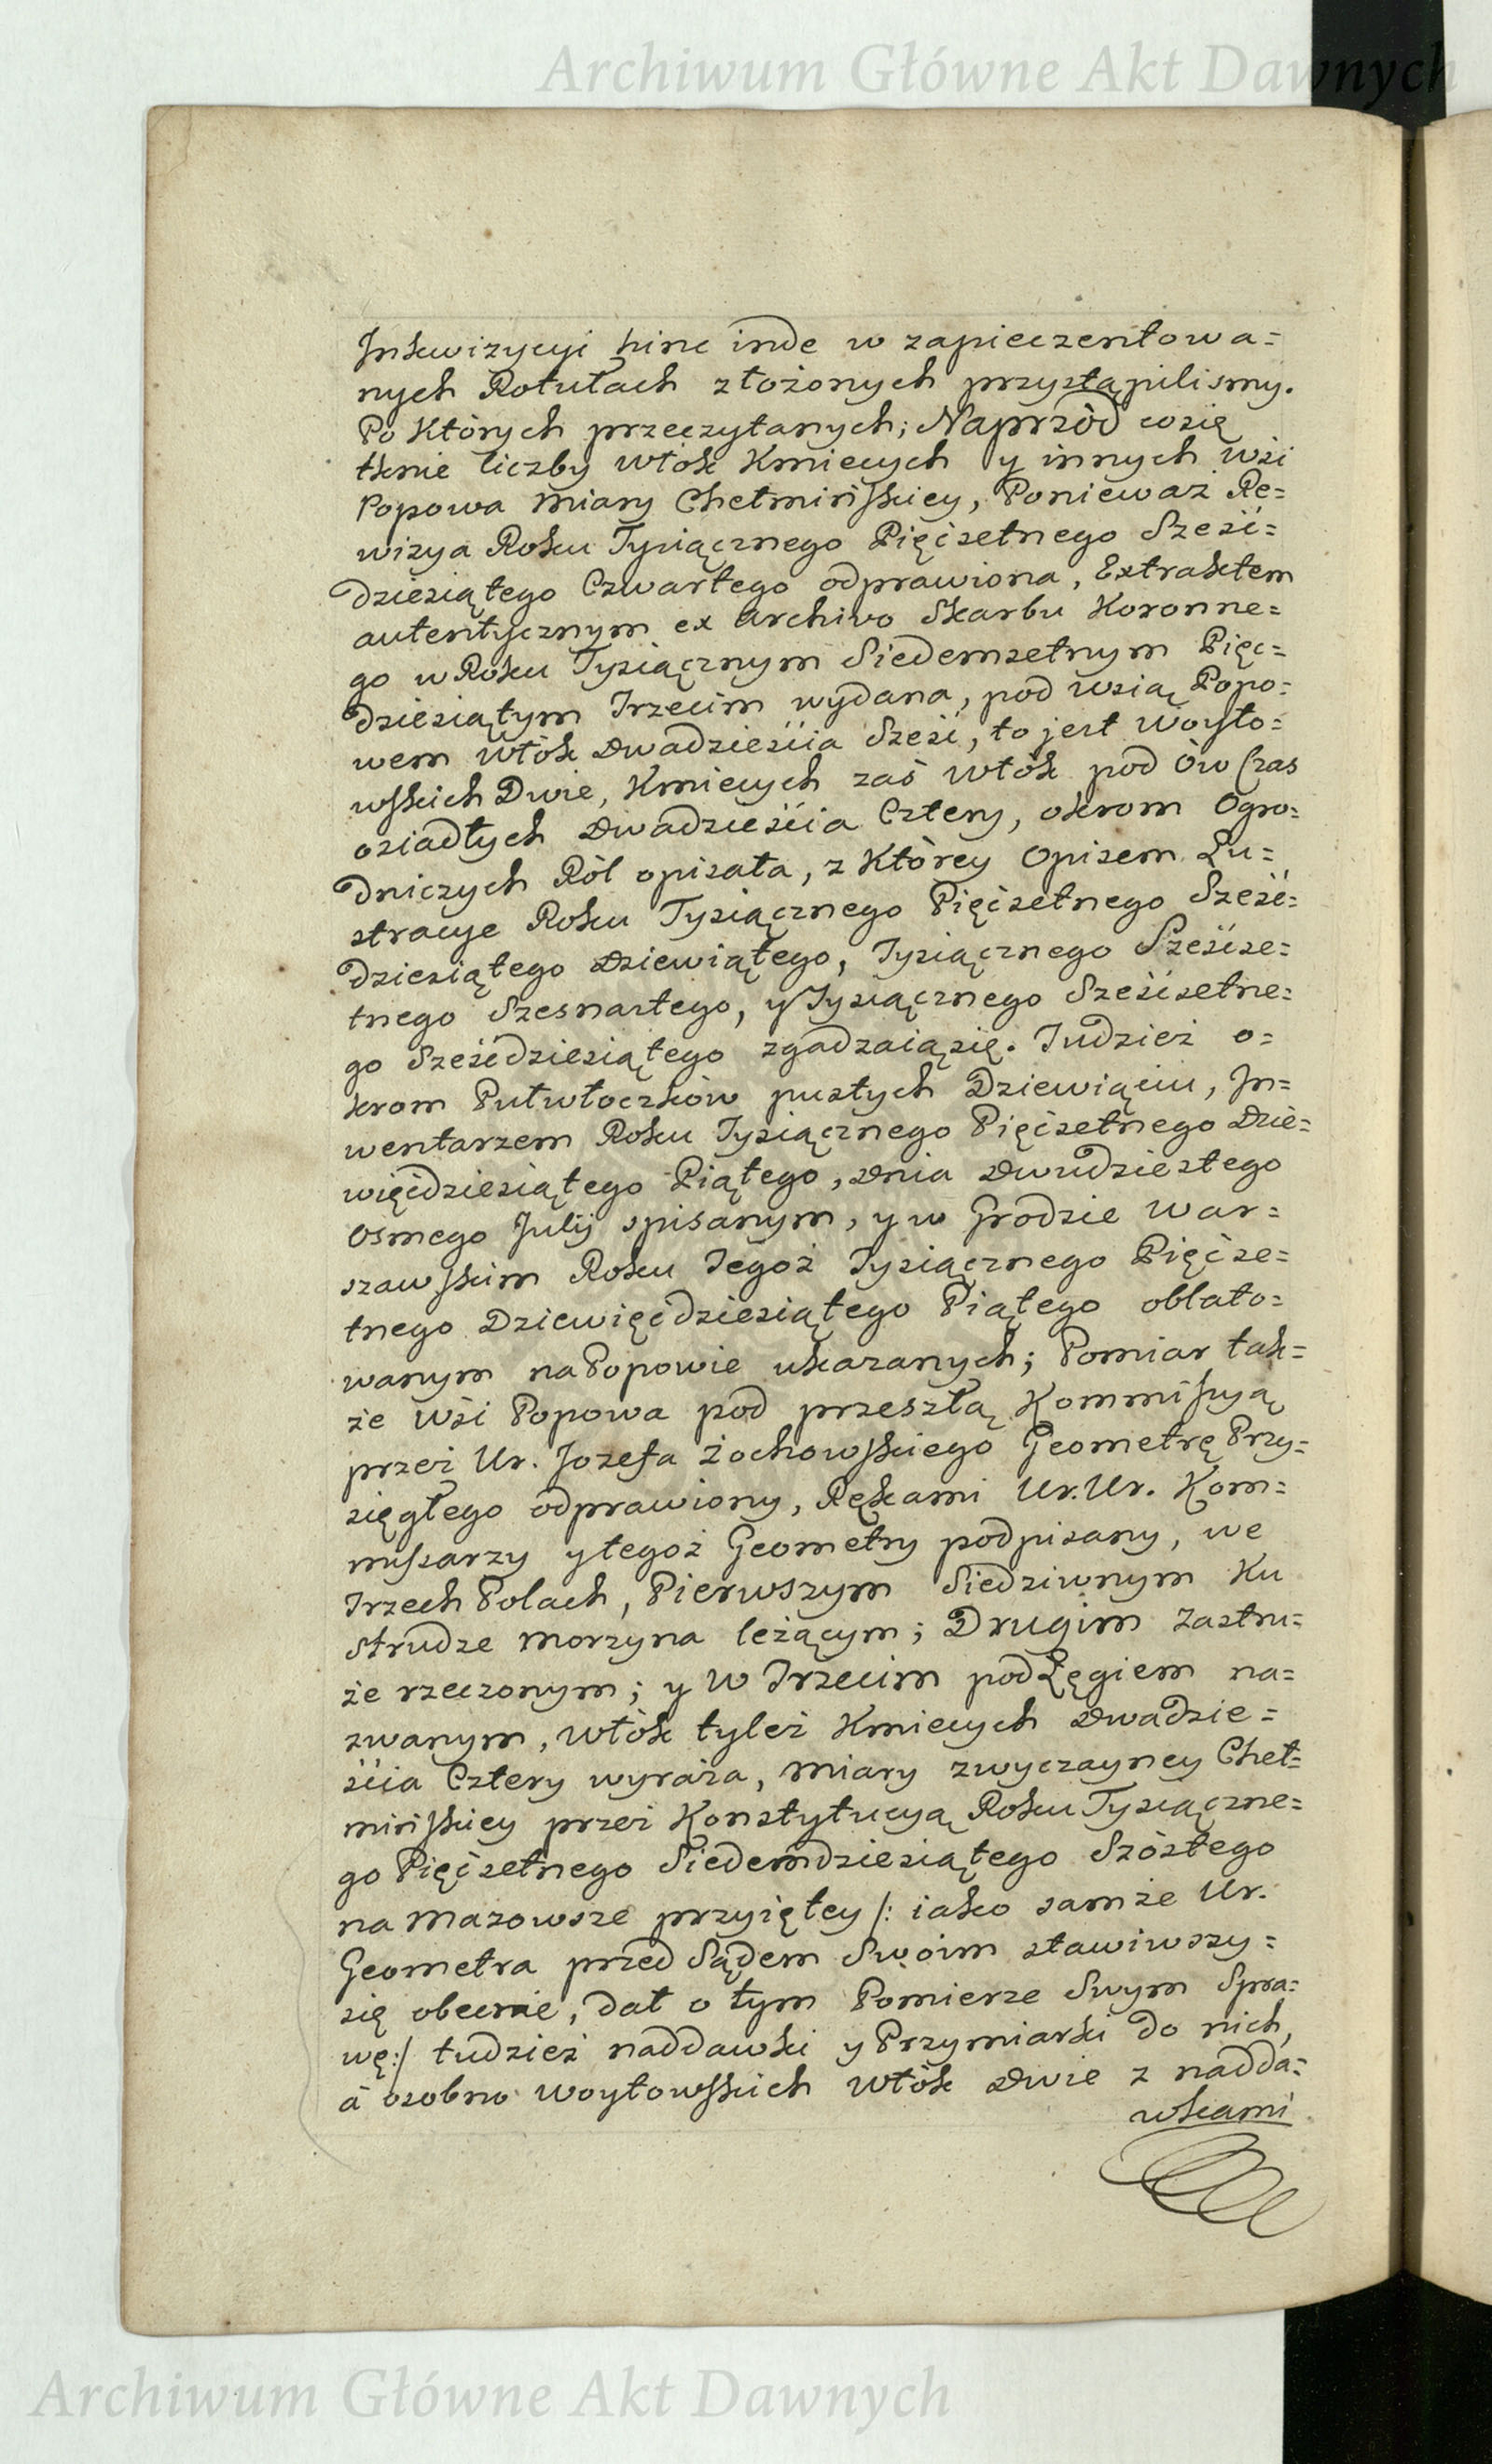 Archiwum Główne Akt Dawnych
Inkwizycyi hinc inde w zapieczentowa=
nych Rotułach złożonych przystąpilismy.
Po Których przeczytanych; Naprzód cosię
tknie liczby włok Kmiecych y innych wsi
Popowa Miary Chełmińskiey, Poniewaz Re=
wizya Roku Tysiącznego Pięćsetnego Sześć=
dziesiątego Czwartego odprawiona, Extraktem
autentycznym ex Archivo Skarbu Koronne=
go w Roku Tysiącznym Siedemsetnym Pięc=
dziesiątym Trzecim wydana, pod wsią Popo=
wem włók Dwadzieścia Sześć, to jest Woyto=
wskich Dwie, Kmiecych zaś włók pod Ów Czas
osiadłych Dwadzieścia Cztery, okrom Ogro=
dniczych Ról opisała, z Którey Opisem Lu=
stracye Roku Tysiącznego Pięćsetnego Sześć=
dziesiątego Dziewiątego, Tysiącznego Sześćse=
tnego Szesnastego, y Tysiącznego Sześćsetne=
go Sześćdziesiątego zgadzaią się. Tudzież o=
krom Pułwłoczków pustych Dziewiąciu, In=
wentarzem Roku Tysiącznego Pięćsetnego Dzie=
więćdziesiątego Piątego, Dnia Dwudziestego
Osmego Julij spisanym, y w Grodzie War=
szawskim Roku Tegoż Tysiącznego Pięćse=
tnego Dziewięćdziesiątego Piątego oblato=
wanym na Popowie ukazanych; Pomiar tak=
że wsi Popowa pod przeszłą Kommissyą
przez Ur. Jozefa Żochowskiego Geometrę Przy=
sięgłego odprawiony, Rękami Ur. Ur. Kom=
missarzy y tegoż Geometry podpisany, we
Trzech Polach, Pierwszym Siedziwnym Ku
Strudze Morzyna leżącym; Drugim Zastru=
że rzeczonym; y w Trzecim pod Łęgiem na=
zwanym, włók tyleż Kmiecych Dwadzie=
ścia Cztery wyraża, Miary zwyczayney Cheł=
mińskiey przez Konstytucyą Roku Tysiączne=
go Pięćsetnego Siedemdziesiątego Szóstego
na Mazowsze przyiętey /: iako samże Ur.
Geometra przed Sądem Swoim stawiwszy=
się obecnie, dał o tym Pomierze Swym Spra=
wę :/ tudzież naddawki y Przymiarki do nich,
á osobno Woytowskich włók Dwie z nadda=
wkami
Archiwum Główne Akt Dawnych